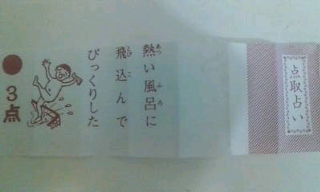 点取占い
熱い風呂に
飛込んで
びっくりした
●3点